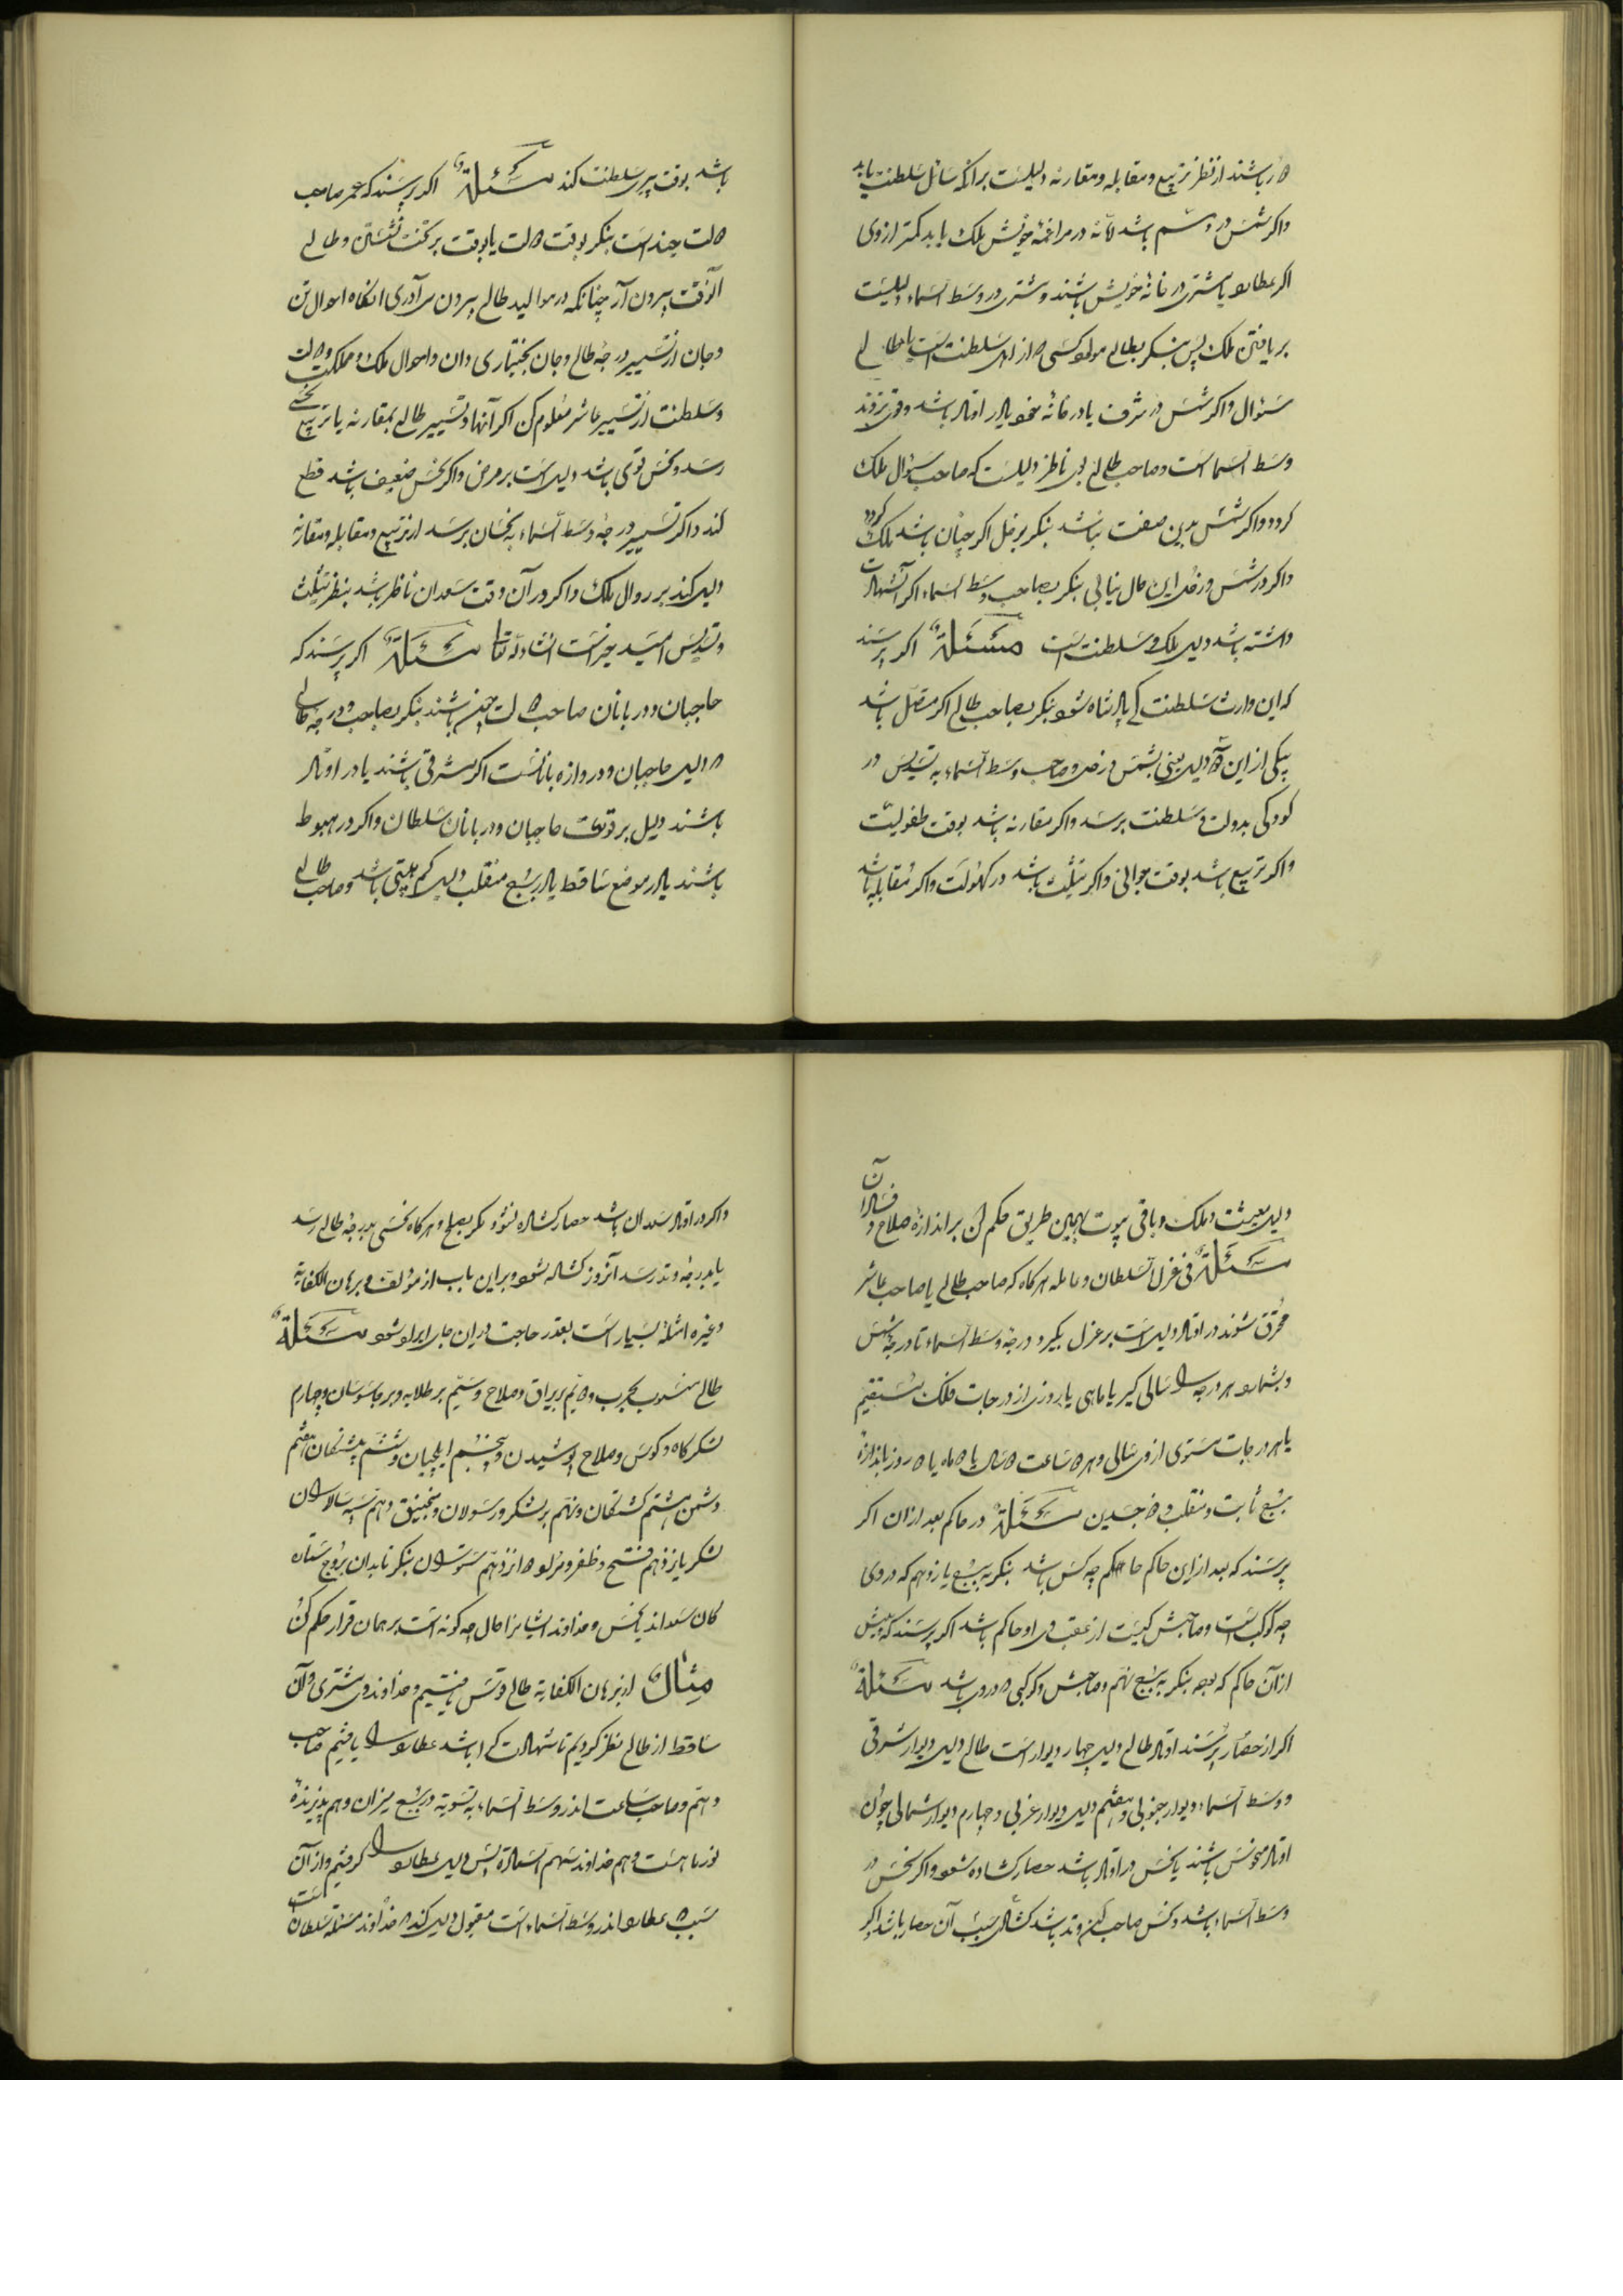 باشند از نظر تربیع و مقابله و مقارنه دلیلست برانکه سائل سلطنت یابد
واکر شمس در باشد در مراغمهٔ خویش ملک یابد کمتر ازوی
اکر عطارد یا مشتری در خانهٔ خویش باشند و مشتری در وسط السماء دلیلست
بر یافتن ملک پس بنکر بطالع مولود کسی از اهل سلطنت است یا طالع
سئوال واکر شمس در شرف یا در خانهٔ خود یا در اوتاد باشد
وسط السما است و صاحب طالع بوی ناظر دلیلست که صاحب سئوال ملک
کردد واکر شمس بدین صفت نباشد بنکر بزحل اکر چنان باشد ملک کردد
واکر در شمس و زحل این حال نیابی بنکر بصاحب وسط السماء اکر آن شهادت
داشته باشد دلیل ملک و سلطنت است مسئلة اکر پرسند
که این وارث سلطنت کی پادشاه شود بنکر بصاحب طالع اکر متصل باشد
بیکی از این دلیل یعنی بشمس و زحل و صاحب وسط السماء به تسدیس در
کودکی بدولت و سلطنت برسد واکر مقارنه باشد بوقت طفولیت
واکر تربیع باشد بوقت جوانی واکر تثلیث باشد در کهولت واکر مقابله باشد
باشد بوقت پیری سلطنت کند مسئلة اکر پرسند که عمر صاحب
دولت چند است بنکر بوقت دولت یا بوقت بر تخت نشستن و طالع
آنوقت بیرون آر چنانکه در موالید طالع بیرون می آوری انکاه احوال تن
و جان از تسییر درجهٔ طالع و جان بختیاری دان و احوال ملک و مملکت و دولت
و سلطنت از تسییر عاشر معلوم کن اکر آنها و تسییر طالع بمقارنه یا تربیع نحسی
رسد و نحس قوی باشد دلیل است بر مرض واکر نحس ضعیف باشد قطع
کند واکر تسییر درجهٔ وسط السماء به نحسان برسد از تربیع و مقابله و مقارنه
دلیل کند بر زوال ملک واکر در آن وقت سعدان ناظر باشد بنظر تثلیث
و تسدیس امید خیر است انشاء الله تعا مسئلة اکر پرسند که
حاجبان و دربانان صاحب دولت چون باشند بنکر بصاحب و درجهٔ طالع
دلیل حاجبان و دروازه بانانست اکر مشرقی باشند یا در اوتاد
باشند دلیل بر قوت حاجبان و دربانان سلطان واکر در هبوط
باشند یا در موضع ساقط یا در برج منقلب دلیل کم باشد و صاحب طالع
دلیل معیشت و ملک و باقی بیوت بهمین طریق حکم کن بر اندازهٔ صلاح و فساد آن
مسئلة فی عزل السلطان و عامله هر کاه که صاحب طالع یا صاحب عاشر
محترق شوند در اوتاد دلیل است بر عزل بکیر درجهٔ وسط السماء تا درجهٔ شمس
و بشمار هر درجه را سالی کیر یا ماهی یا روزی از درجات فلک مستقیم
یا هر درجات مستوی ازو سالی و هر ساعت سال یا ماه یا روز باندازهٔ
برج ثابت و منقلب و ذو جسدین مسئلة در حاکم بعد ازان اکر
پرسند که بعد از این حاکم حاکم چه کس باشد بنکر به برج یازدهم که در وی
چه کوکب است و صاحبش کیست از عقب وی او حاکم باشد اکر پرسند که پیش
از آن حاکم که بوده بنکر به برج نهم و صاحبش و کوکبی در وی باشد مسئلة
اکر از حصار پرسند اوتاد طالع دلیل چهار دیوار است طالع دلیل دیوار شرقی
و وسط السماء دیوار جنوبی و هفتم دلیل دیوار غربی و چهارم دیوار شمالی چون
اوتاد منحوس باشند یا نحس در اوتاد باشد حصار کشاده شود واکر نحس در
وسط السماء باشد و نحس صاحب وتد باشد کشادن بسبب آن حصار باشد واکر
واکر در اوتاد سعدان باشد حصار کشاده نشود مکر بصلح و هر کاه نحسی بدرجهٔ طالع رسد
یا بدرجهٔ وتد رسد آنروز کشاده شود و براین باب از مؤلف و برهان الکفایه
و غیره امثله بسیار است بقدر حاجت در این جا ایراد شود مسئلة
طالع منسوب بحرب و دویّم بریراق و صلاح و سیّم بر طلایه و بر جاسوسان و چهارم
لشکرکاه و کوس و سلاح پوشیدن و پنجم ایلچیان و ششم هفتم
دشمن هشتم کشتکان و نهم بر لشکر و رسولان و منجنیق و دهم سپه سالاران
لشکر یازدهم فتح و ظفر و دوازدهم ستوران بنکر تا بدان بروج ستاره
کان سعداند یا نحس و خداوند ایشانرا حال چه کونه است بر همان قرار حکم کن
مثال از برهان الکفایه طالع قوس یافتیم و خداوندش مشتری و آن
ساقط از طالع نظر کردیم تا شهادت کرا باشد عطارد را یافتیم صاحب
دهم و صاحب ساعت اندر وسط السماء به تسویة در برج میزان و هم پذیرندهٔ
نور ماهست و هم خداوند سهم السعادة پس دلیل عطارد را کرفتیم و از آن
سبب عطارد اندر وسط السماء است مقبول دلیل کند خداوند مسئله سلطان است